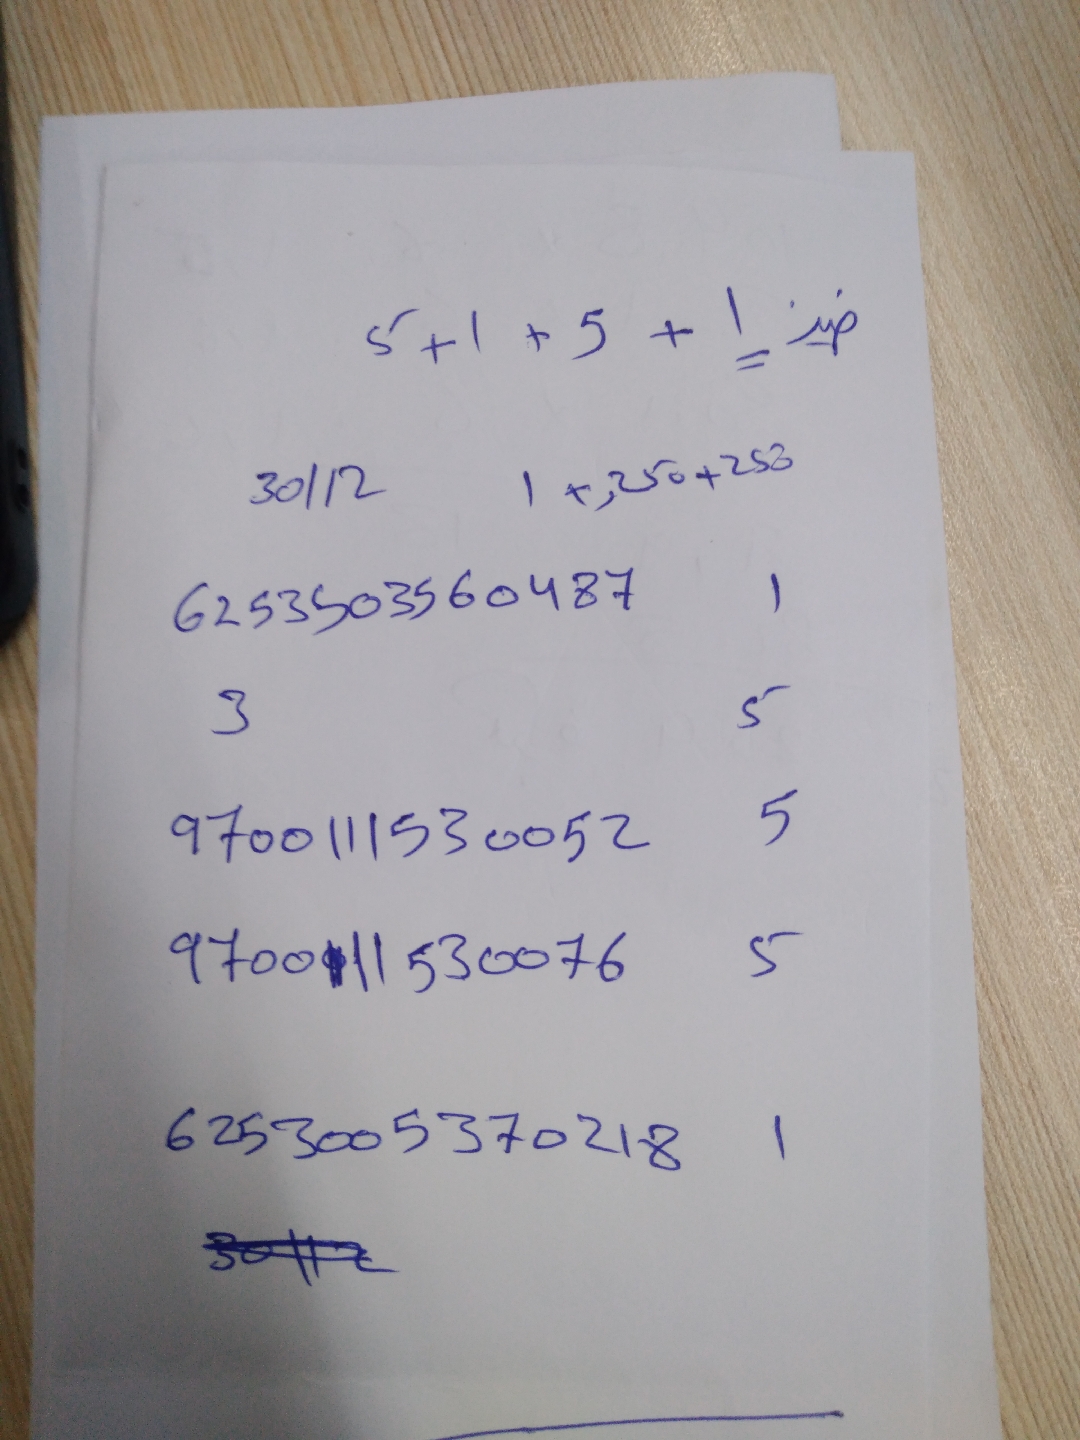 5+1 + 5 + 1
30112 1 +,250+250
6253503560487 1
3 5
9700111530052 5
9700111530076 5
6253005370218 1
30112